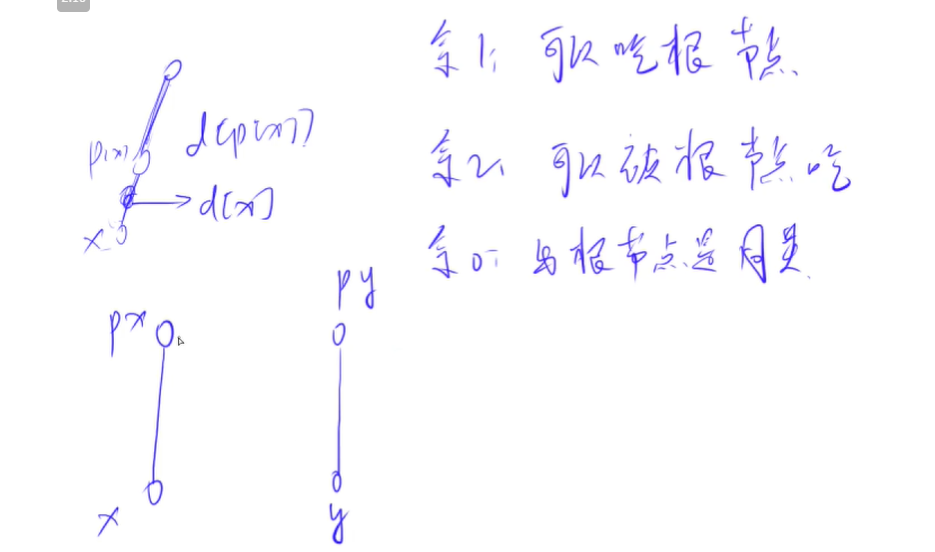 余1: 可以吃根节点
d(p(x))
p(x)
余2: 可以被根节点吃
d[x]
x
余0: 与根节点是同类
py
px
x
y